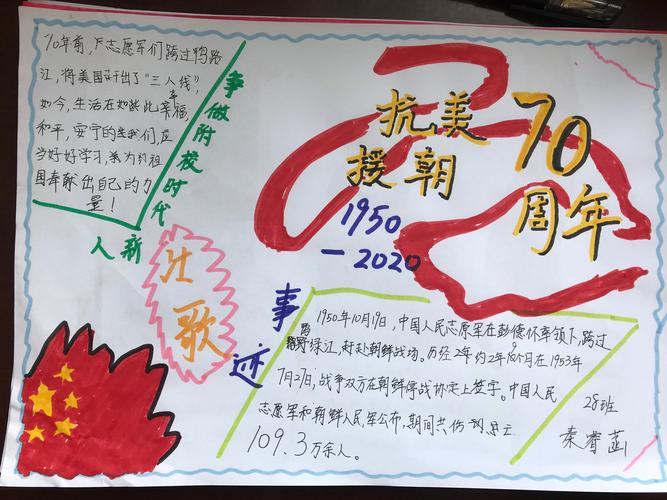 70年前，志愿军们跨过鸭路
江，将美国赶出了"三八线"，
如今，生活在如此此幸福，
和平，安宁的我们，应
当好好学习，为祖
国奉献出自己的力
量！
争做附校时代
新人
壮歌
抗美
援朝
70
周年
1950
—2020
事迹
1950年10月19日，中国人民志愿军在彭德怀率领下，跨过
绿江，赶赴朝鲜战场。历经2年约2年9个月在1953年
7月27日，战争双方在朝鲜停战协定上签字。中国人民
志愿军和朝鲜人民军公布，期间共伤
109.3万余人。
28班
秦